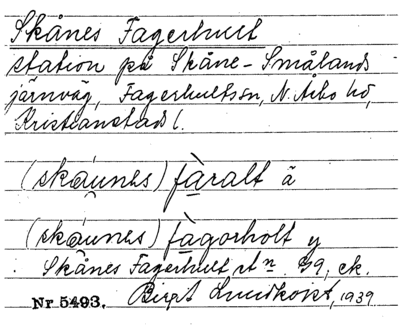 Skånes Fagerhult
station på Skåne-Smålands
järnväg, Fagerhults sn, N. Åsbo hd,
Kristianstads l.
(skáunes) fàralt ä
(skáunes) fàgorholt y
Skånes Fagerhult st n 99, ek.
Nr 5493. Birgit Lundkvist, 1939